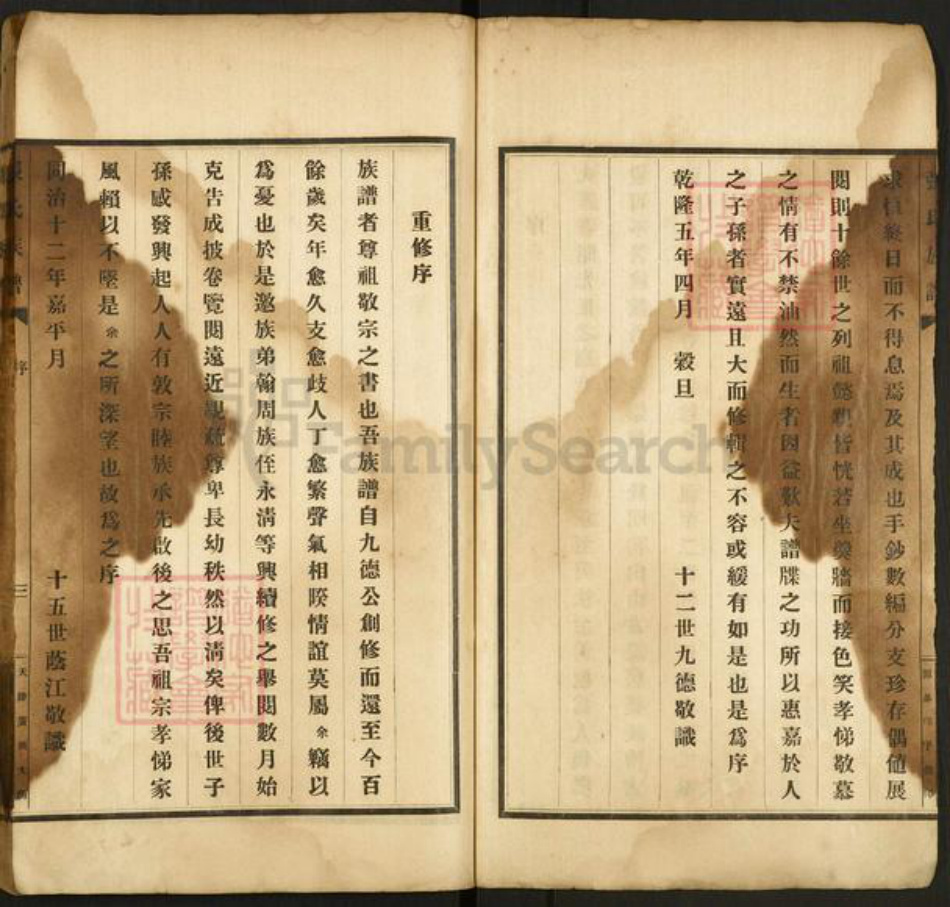 求恒終日而不得息焉及其成也手鈔數編分支珍存偶值展
閱則十餘世之列祖懿親皆恍若坐羹牆而接色笑孝悌敬慕
之情有不禁油然而生者因益歎夫譜牒之功所以惠嘉於人
之子孫者實遠且大而修輯之不容或緩有如是也是為序
乾隆五年四月 穀旦 十二世九德敬識
重修序
族譜者尊祖敬宗之書也吾族譜自九德公創修而還至今百
餘歲矣年愈久支愈歧人丁愈繁聲氣相睽情誼莫屬余竊以
為憂也於是邀族弟翰周族侄永清等興續修之舉閱數月始
克告成披卷覽閱遠近親疏尊卑長幼秩然以清矣俾後世子
孫感發興起人人有敦宗睦族承先啟後之思吾祖宗孝悌家
風賴以不墜是余之所深望也故為之序
同治十二年嘉平月 十五世蔭江敬識
氏族譜
序
三
FamilySearch